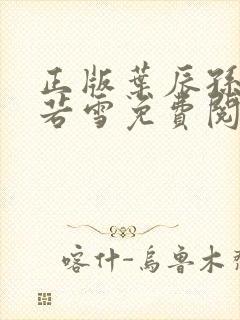 正版葉辰孫
若雪免費閱
喀什-烏魯木齊